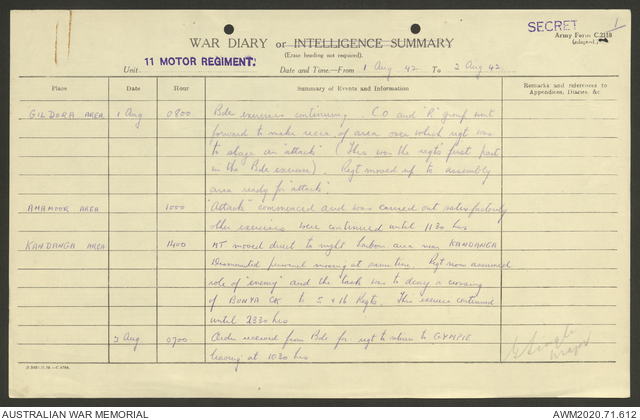 SECRET
1
Army Form C.2118
(adapted.)
WAR DIARY or INTELLIGENCE SUMMARY
(Erase heading not required).
Unit 11 MOTOR REGIMENT.
Date and Time—From 1 Aug 42 To 2 Aug 42
Place Date Hour Summary of Events and Information Remarks and references to Appendices, Diaries, &c
GILDORA AREA 1 Aug 0800 Bde exercises continuing. CO and "R" group went
forward to make recce of area over which regt was
to stage an "attack" (This was the regt's first part
in the Bde exercise). Regt moved up to assembly
area ready for "attack".
AMAMOOR AREA 1000 "Attack" commenced and was carried out satisfactorily
other exercises were continued until 1130 hrs
KANDANGA AREA 1400 MT moved direct to night harbour area near KANDANGA
Dismounted personnel moving at same time. Regt now assumed
role of "enemy" and the task was to deny a crossing
of BONYA CK to 5 & 16 Regts. This exercise continued
until 2330 hrs
2 Aug 0700 Order received from Bde for regt to return to GYMPIE
leaving at 1030 hrs.
Major
AUSTRALIAN WAR MEMORIAL
AWM2020.71.612